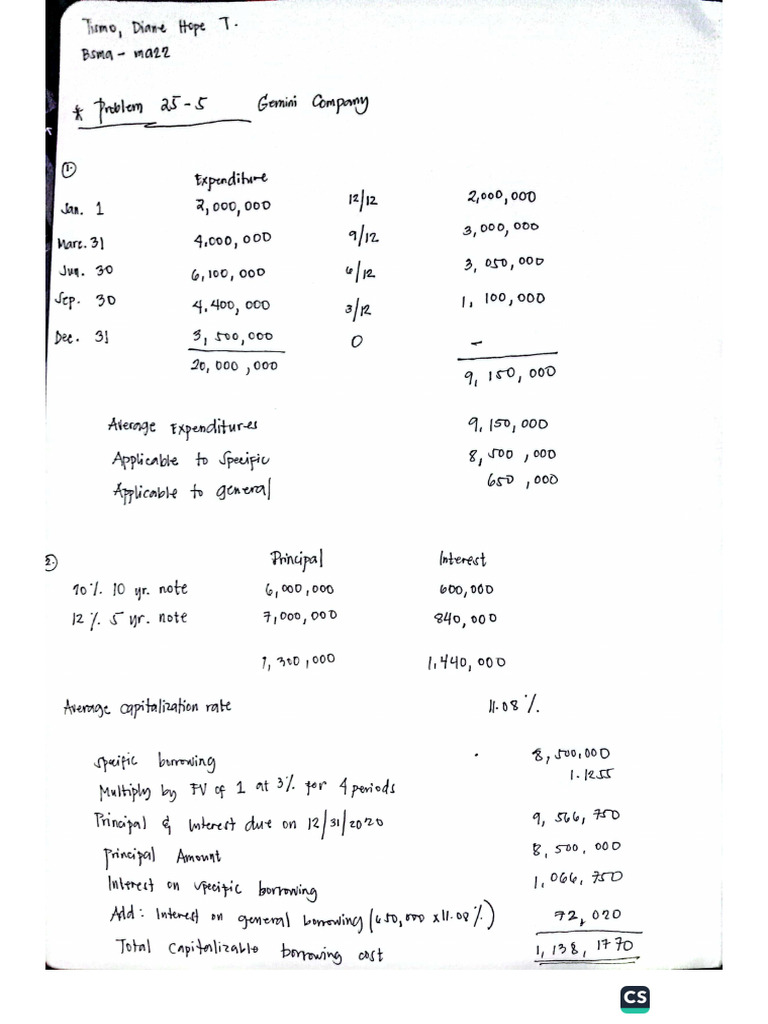 Tismo, Diane Hope T.
Bsma - ma22
* Problem 25-5 Gemini Company
1.
Expenditure
Jan. 1 2,000,000 12/12 2,000,000
Marc. 31 4,000,000 9/12 3,000,000
Jun. 30 6,100,000 6/12 3,050,000
Sep. 30 4,400,000 3/12 1,100,000
Dec. 31 3,500,000 0 -
20,000,000 9,150,000
Average Expenditures 9,150,000
Applicable to Specific 8,500,000
Applicable to general 650,000
2. Principal Interest
10% 10 yr. note 6,000,000 600,000
12% 5 yr. note 7,000,000 840,000
1,300,000 1,440,000
Average capitalization rate 11.08%
Specific borrowing 8,500,000
Multiply by FV of 1 at 3% for 4 periods 1.1255
Principal & Interest due on 12/31/2020 9,566,750
Principal Amount 8,500,000
Interest on specific borrowing 1,066,750
Add: Interest on general borrowing (650,000 x 11.08%) 72,020
Total Capitalizable borrowing cost 1,138,1770
CS